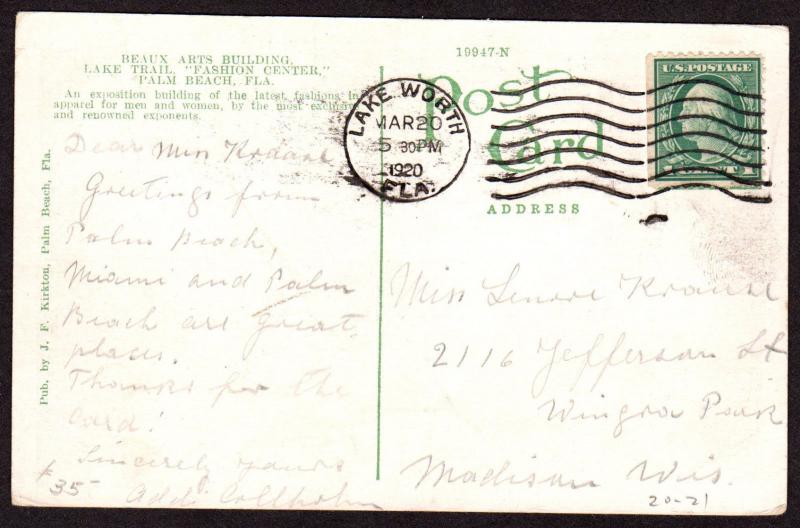 BEAUX ARTS BUILDING,
LAKE TRAIL, "FASHION CENTER,"
PALM BEACH, FLA.
An exposition building of the latest fashions in
apparel for men and women, by the most exclusive
and renowned exponents.
19947-N
Post
Card
ADDRESS
LAKE WORTH
MAR 20
5 30PM
1920
FLA.
U.S. POSTAGE
Pub. by J. F. Kirkton, Palm Beach, Fla.
Dear Miss Krause
Greetings from
Palm Beach,
Miami and Palm
Beach are great
places.
Thanks for the
card!
Sincerely yours
Miss Lenore Krause
2116 Jefferson St
Wingra Park
Madison Wis.
20-21
35